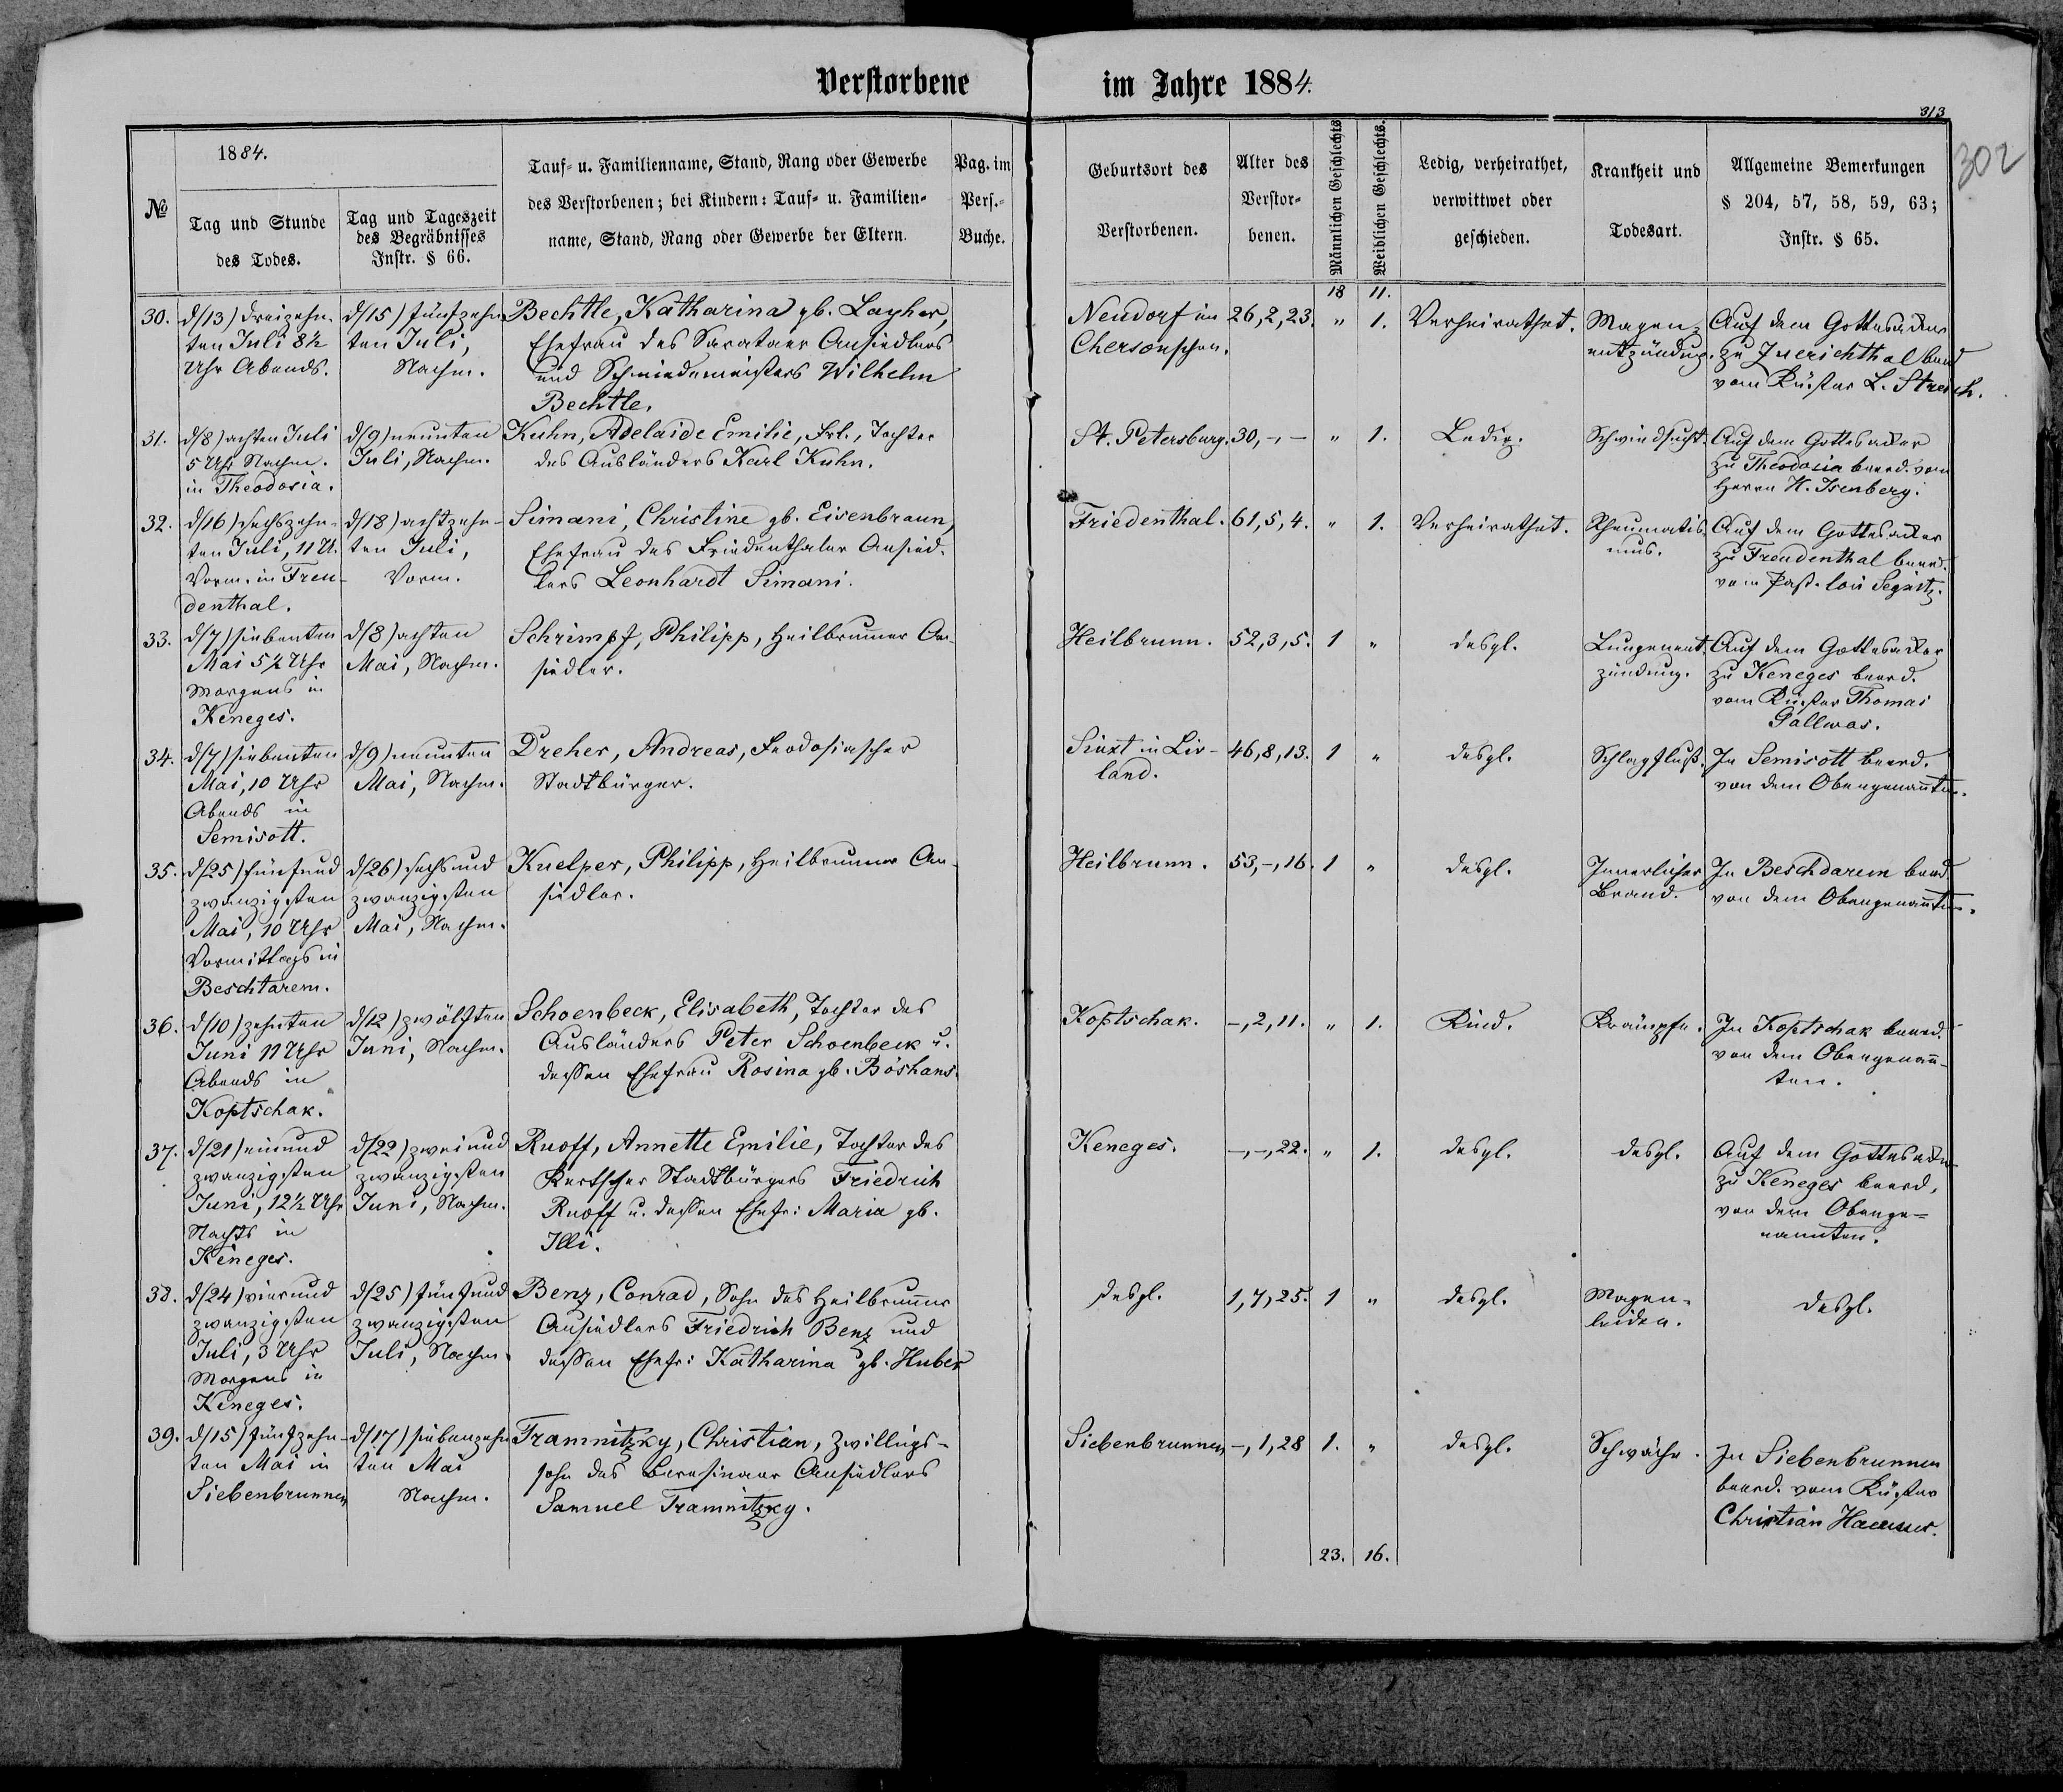 Verstorbene im Jahre 1884.
313
302
№
1884.
Tag und Stunde
des Todes.
Tag und Tageszeit
des Begräbnisses
Instr. § 66.
Tauf- u. Familienname, Stand, Rang oder Gewerbe
des Verstorbenen; bei Kindern: Tauf- u. Familien-
name, Stand, Rang oder Gewerbe der Eltern.
Pag. im
Pers.-
Buche.
Geburtsort des
Verstorbenen.
Alter des
Verstor-
benen.
Männlichen Geschlechts
Weiblichen Geschlechts.
Ledig, verheirathet,
verwittwet oder
geschieden.
Krankheit und
Todesart.
Allgemeine Bemerkungen
§ 204, 57, 58, 59, 63;
Instr. § 65.
18 11.
30.
d/13) dreizehn-
ten Juli 8½
Uhr Abends.
d/15) fünfzehn
ten Juli,
Nachm.
Bechtle, Katharina gb. Layher,
Ehefrau des Sarataer Ansiedlers
und Schmiedemeisters Wilhelm
Bechtle.
Neudorf im
Chersonschen.
26,2,23.
" 1.
Verheirathet.
Magen-
entzündug.
Auf dem Gottesacker
zu Zuerichthal beerd
vom Küster L. Streich.
31.
d/8) achten Juli
5 Uhr Nachm.
in Theodosia.
d/9) neunten
Juli, Nachm.
Kuhn, Adelaide Emilie, Frl., Tochter
des Ausländers Karl Kuhn.
St. Petersburg.
30,-,-
" 1.
Ledig.
Schwindsucht.
Auf dem Gottesacker
zu Theodosia beerd. vom
Herrn H. Isenberg.
32.
d/16) sechszehn-
ten Juli, 11 U.
Vorm. in Freu-
denthal.
d/18) achtzehn-
ten Juli,
Vorm.
Simani, Christine gb. Eisenbraun,
Ehefrau des Friedenthaler Ansied-
lers Leonhardt Simani.
Friedenthal.
61,5,4.
" 1.
Verheirathet.
Rheumatis-
mus.
Auf dem Gottesacker
zu Freudenthal beerd.
vom Past. loci Segnitz.
33.
d/7) siebenten
Mai 5½ Uhr
Morgens in
Keneges.
d/8) achten
Mai, Nachm.
Schrimpf, Philipp, Heilbrunner An-
siedler.
Heilbrunn.
52,3,5.
1 "
desgl.
Lungenent-
zündung.
Auf dem Gottesacker
zu Keneges beerd.
vom Küster Thomas
Gallwas.
34.
d/7) siebenten
Mai, 10 Uhr
Abends in
Semisott.
d/9) neunten
Mai, Nachm.
Dreher, Andreas, Feodosiascher
Stadtbürger.
Sinxt in Liv-
land.
46,8,13.
1 "
desgl.
Schlagfluß.
In Semisott beerd.
von dem Obengenannten.
35.
d/25) fünfund
zwanzigsten
Mai, 10 Uhr
Vormittags in
Beschtarem.
d/26) sechsund
zwanzigsten
Mai, Nachm.
Knelper, Philipp, Heilbrunner An-
siedler.
Heilbrunn.
53,-,16.
1 "
desgl.
Innerlicher
Brand.
In Beschdarem beerd
von dem Obengenannten.
36.
d/10) zehnten
Juni 11 Uhr
Abends in
Koptschak.
d/12) zwölften
Juni, Nachm.
Schoenbeck, Elisabeth, Tochter des
Ausländers Peter Schoenbeck u.
dessen Ehefrau Rosina gb. Böshans.
Koptschak.
-,2,11.
" 1.
Kind.
Krämpfe.
In Koptschak beerd.
von dem Obengenann-
ten.
37.
d/21) einund
zwanzigsten
Juni, 12½ Uhr
Nachts in
Keneges.
d/22) zweiund
zwanzigsten
Juni, Nachm.
Ruoff, Annette Emilie, Tochter des
Kertscher Stadtbürgers Friedrich
Ruoff u. dessen Ehefr: Maria gb.
Illi.
Keneges.
-,-,22.
" 1.
desgl.
desgl.
Auf dem Gottesacker
zu Keneges beerd,
von dem Obenge-
nannten.
38.
d/24) vierund
zwanzigsten
Juli, 3 Uhr
Morgens in
Keneges.
d/25) fünfund
zwanzigsten
Juli, Nachm.
Benz, Conrad, Sohn des Heilbrunner
Ansiedlers Friedrich Benz und
dessen Ehefr: Katharina gb. Huber
desgl.
1,7,25.
1 "
desgl.
Magen-
leiden.
desgl.
39.
d/15) fünfzehn-
ten Mai in
Siebenbrunnen
d/17) siebenzehn
ten Mai
Nachm.
Tramnitzky, Christian, Zwillings-
sohn des Beresinaer Ansiedlers
Samuel Tramnitzky.
Siebenbrunnen
-,1,28
1. "
desgl.
Schwäche.
In Siebenbrunnen
beerd. vom Küster
Christian
23. 16.